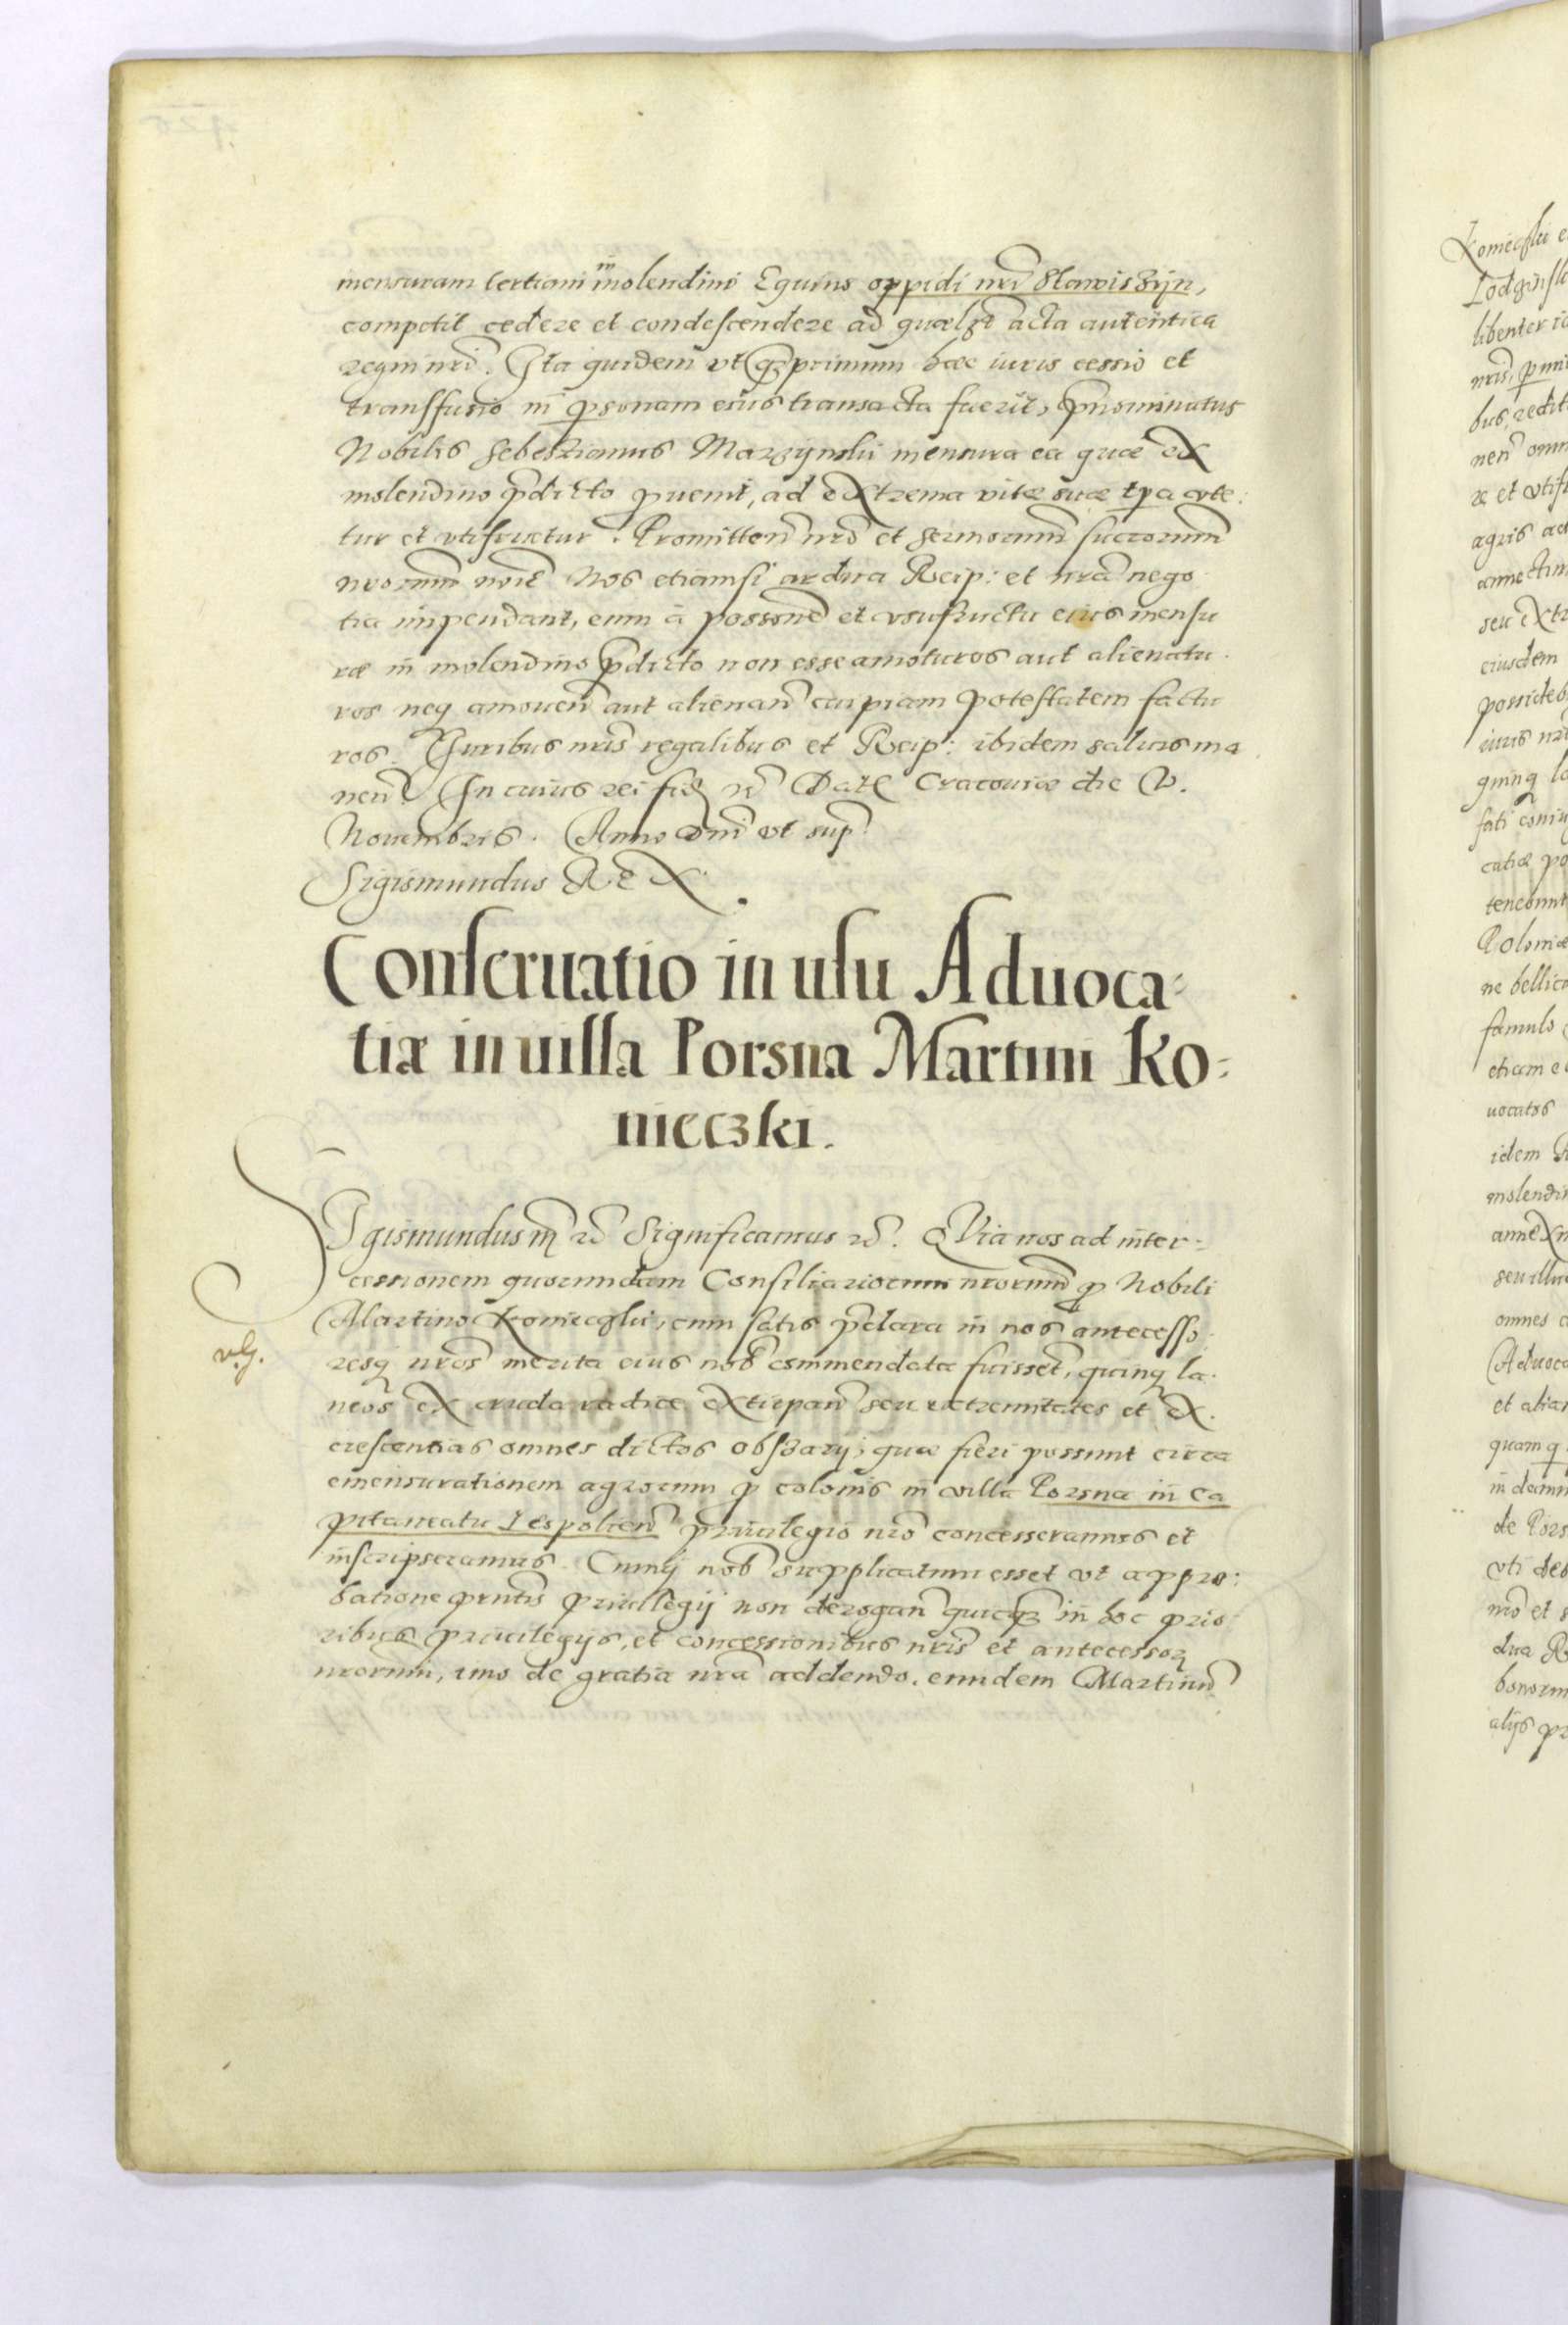 mensuram tertiam in molendini Equius oppidi nri Stawiszijn,
competit cedere et condescendere ad quælibet acta autentica
regni nri. Ita quidem vt q primum hæc iuris cessio et
transfusio in psonam eius transacta fuerit, pnominatus
Nobilis Sebestianus Marzijnski mensura ea quæ ex
molendino pdicto puenit, ad extrema vitæ suæ tpa vte:
tur et vtifruetur. Promitten nro et Sermorum Succorum
nrorum noie Nos etiamsi ardua Reip: et nra nego
tia impendant, eum à possone et vsufructu eius mensu
ræ in molendino pdicto non esse amoturos aut alienatu
ros neq amouen aut alienan cuipiam potestatem factu
ros. Iuribus nris regalibus et Reip: ibidem saluis ma
nen. In cuius rei fid Dat Cracouiæ die V.
Nouembris. Anno dni vt sup
Sigismundus Rex.
Conseruatio in usu Aduoca:
tiæ in uilla Porsna Martini Ko:
nieczki.
SIgismundus Significamus. Quia nos ad inter:
cessionem quorundam Consiliariorum nrorum p Nobili
Martino Konieczki, cum satis pclara in nos antecesso
resq nros merita eius nob commendata fuissent, quinq la:
neos ex cruda radice extirpan seu extremitates et ex
crescentias omnes dictos obszarij, quæ fieri possunt circa
emensurationem agrorum p colonis in villa Porsna in ca
pitaneatu Lespolien priuilegio nro concesseramus et
inscripseramus. Cumq nob supplicatum esset vt appro:
batione pntis priuilegij non derogan quicq in hoc prio
ribus priuilegijs, et concessionibus nris et antecessor
nrorum, imo de gratia nra addendo. eundem Martinu
Koniecski
libenter
nris
bus, redit
omn
et vtifr
agris
annectim
seu extr
eiusdem
possideb
iuris
quinq la
teneannt
Poloniæ
ne bellica
famulo
etiam
uocatos
idem
molendin
annex
seu
omnes
Aduoca
et alia
quam
in
de Pors
vti deb
nro et
dua R
bonorum
alijs